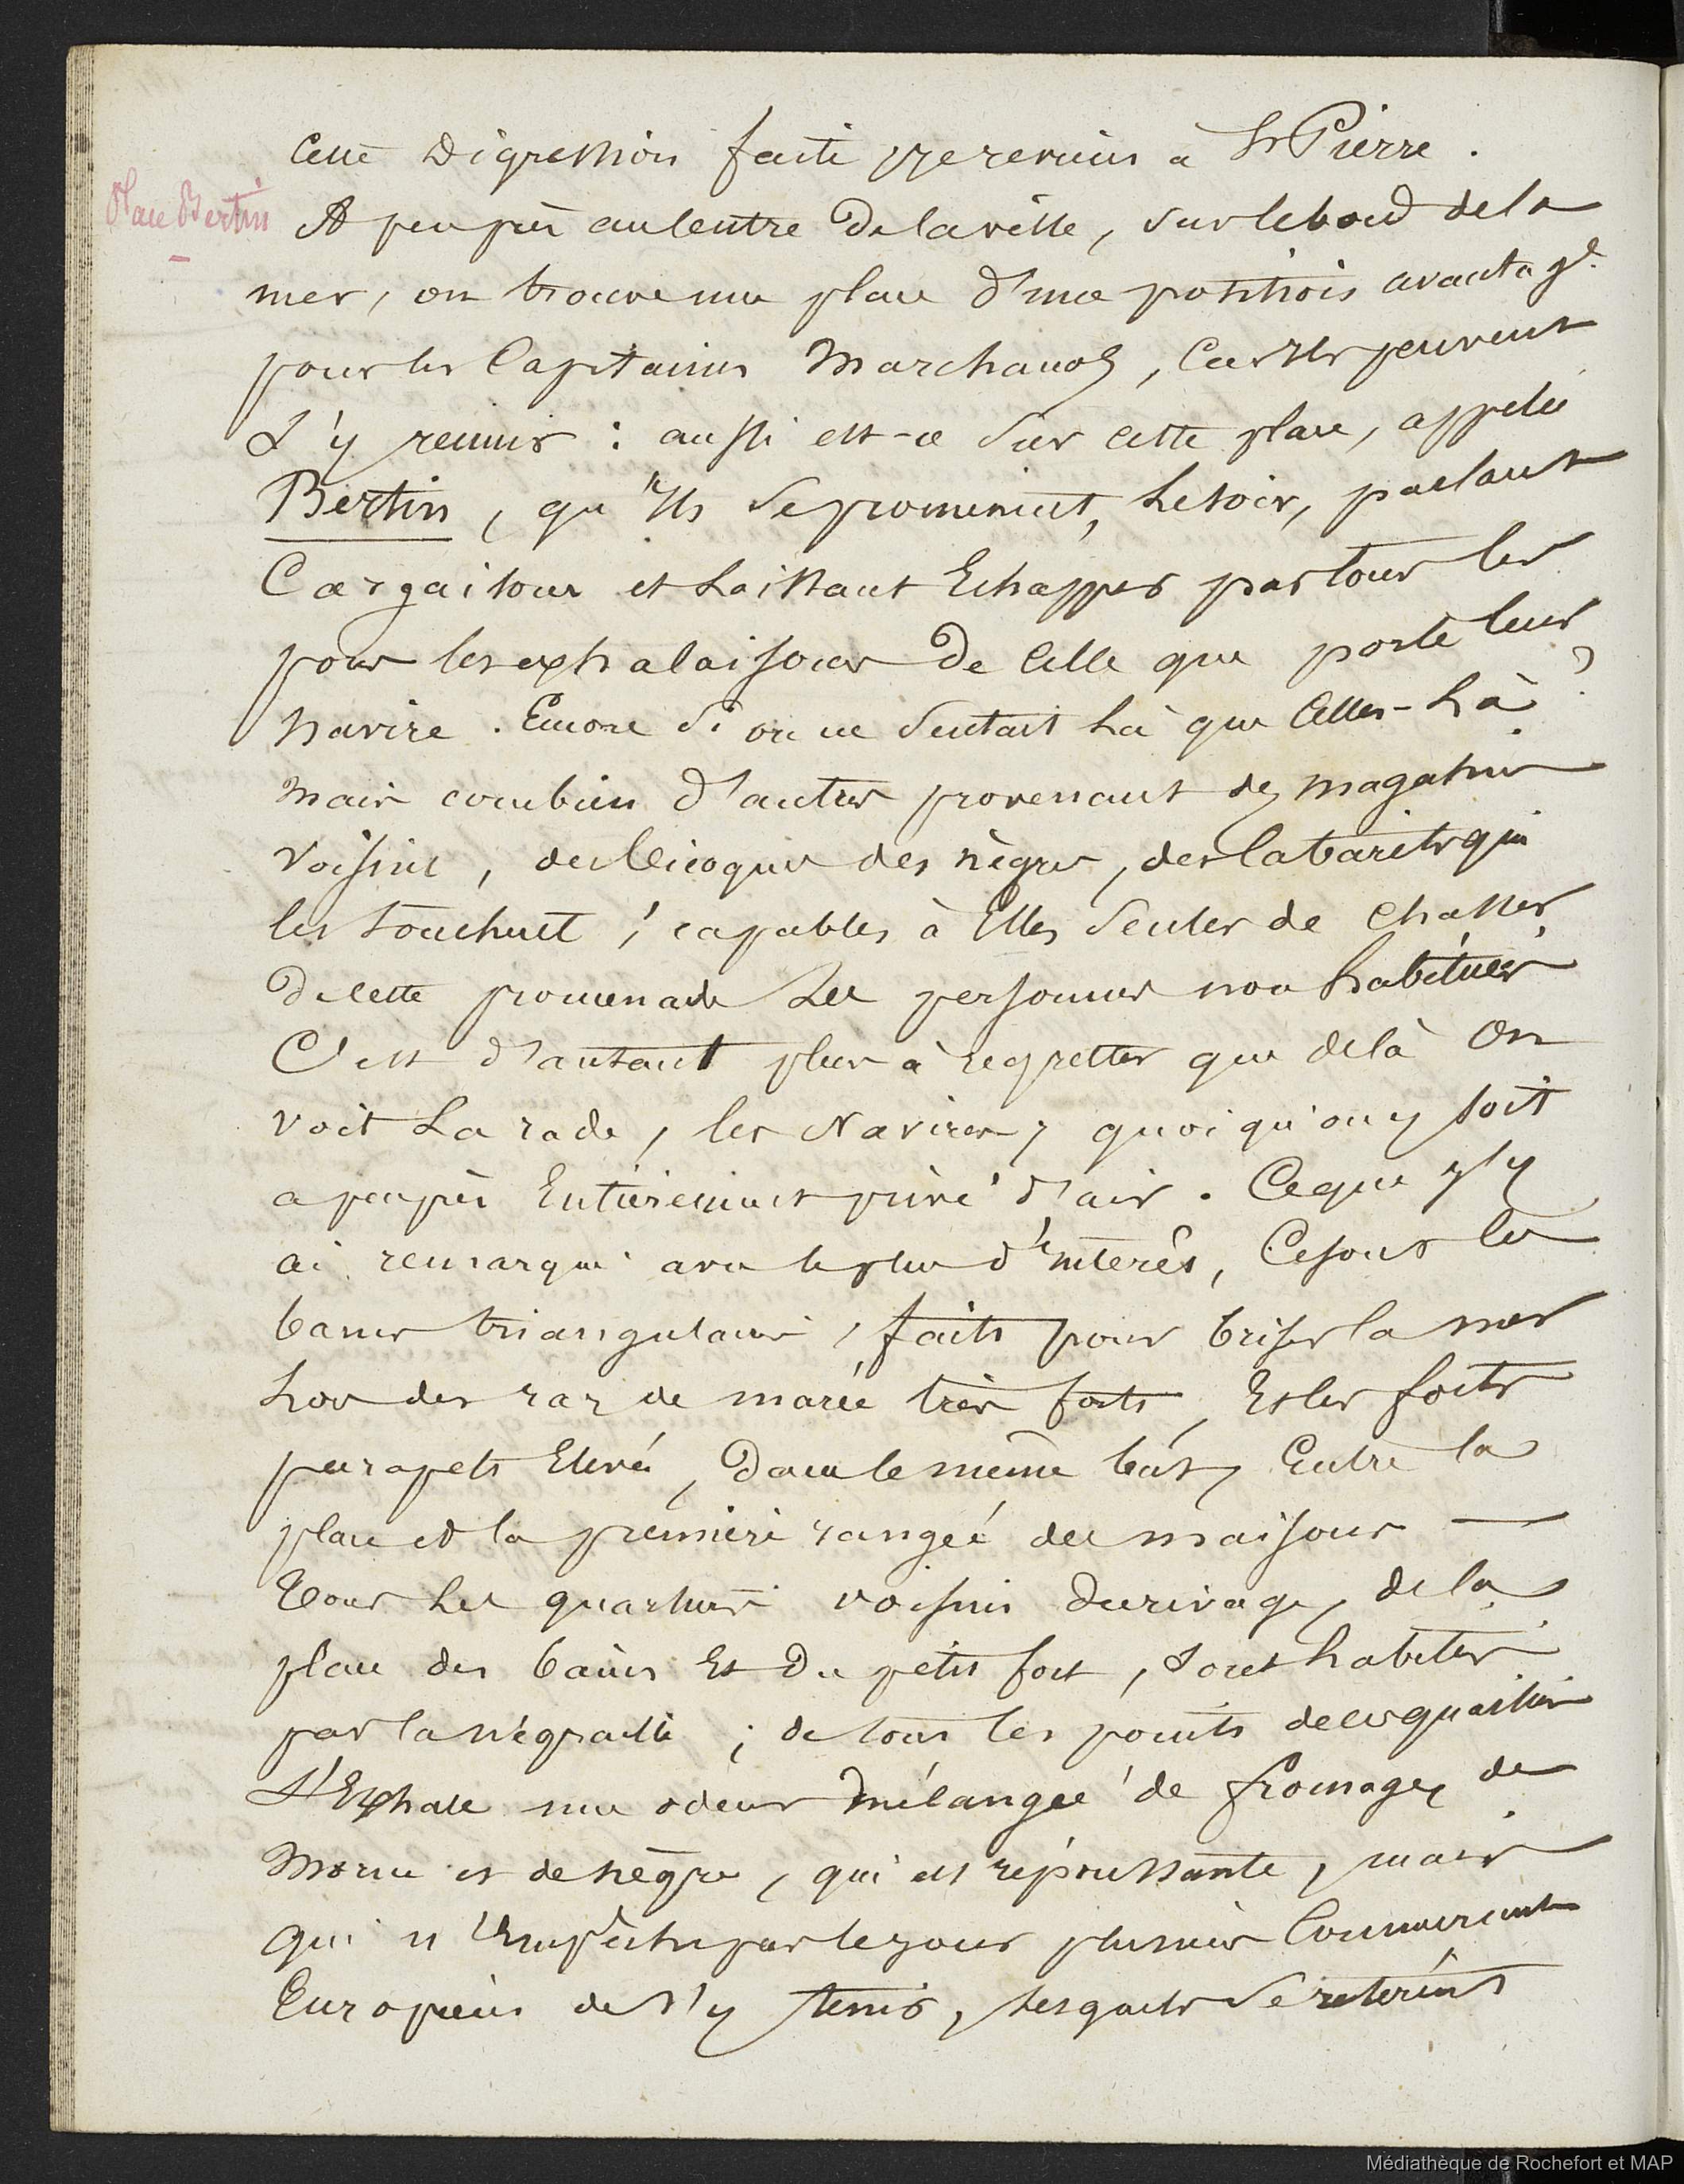 Cette digression faite je reviens à St Pierre.
Place Bertin
A peu près au centre de la ville, sur le bord de la
mer, on trouve une place d'une position avantage.
pour les Capitaines Marchands, Car ils peuvent
s'y réunir : aussi est-ce sur cette place, appelée
Bertin, qu'ils se promènent, le soir, parlant
Cargaisons et laissant Echapper par tous les
pores les exhalaisons de Celle que porte leur
navire. Encore si on ne sentait là que Celles-là,
mais combien d'autres provenant des magasins
voisins, des bicoques des nègres, des cabarets qui
les touchent, capables à Elles seules de chasser,
de cette promenade les personnes non habituées
C'est d'autant plus à regretter que de là on
voit la rade, les Navires, quoiqu'on y soit
a peu près Entièrement privé d'air. Ce que j'y
ai remarqué avec le plus d'intérêt, Ce sont les
bancs triangulaires, faits pour briser la mer
lors des raz de marée très forts, Et les forts
parapets Elevés, dans le même but, Entre la
place et la première rangée des maisons —
Tous les quartiers voisins du rivage, de la
place des bains Et du petit fort, sont habités
par la négraille ; de tous les points de ces quartiers
S'Exhale une odeur mélangée de fromage, de
Morue et de nègre, qui est repoussante, mais
qui n'Empêche pas le jour plusieurs Commercants
Européens de s'y tenir, lesquels se retirent
Médiathèque de Rochefort et MAP